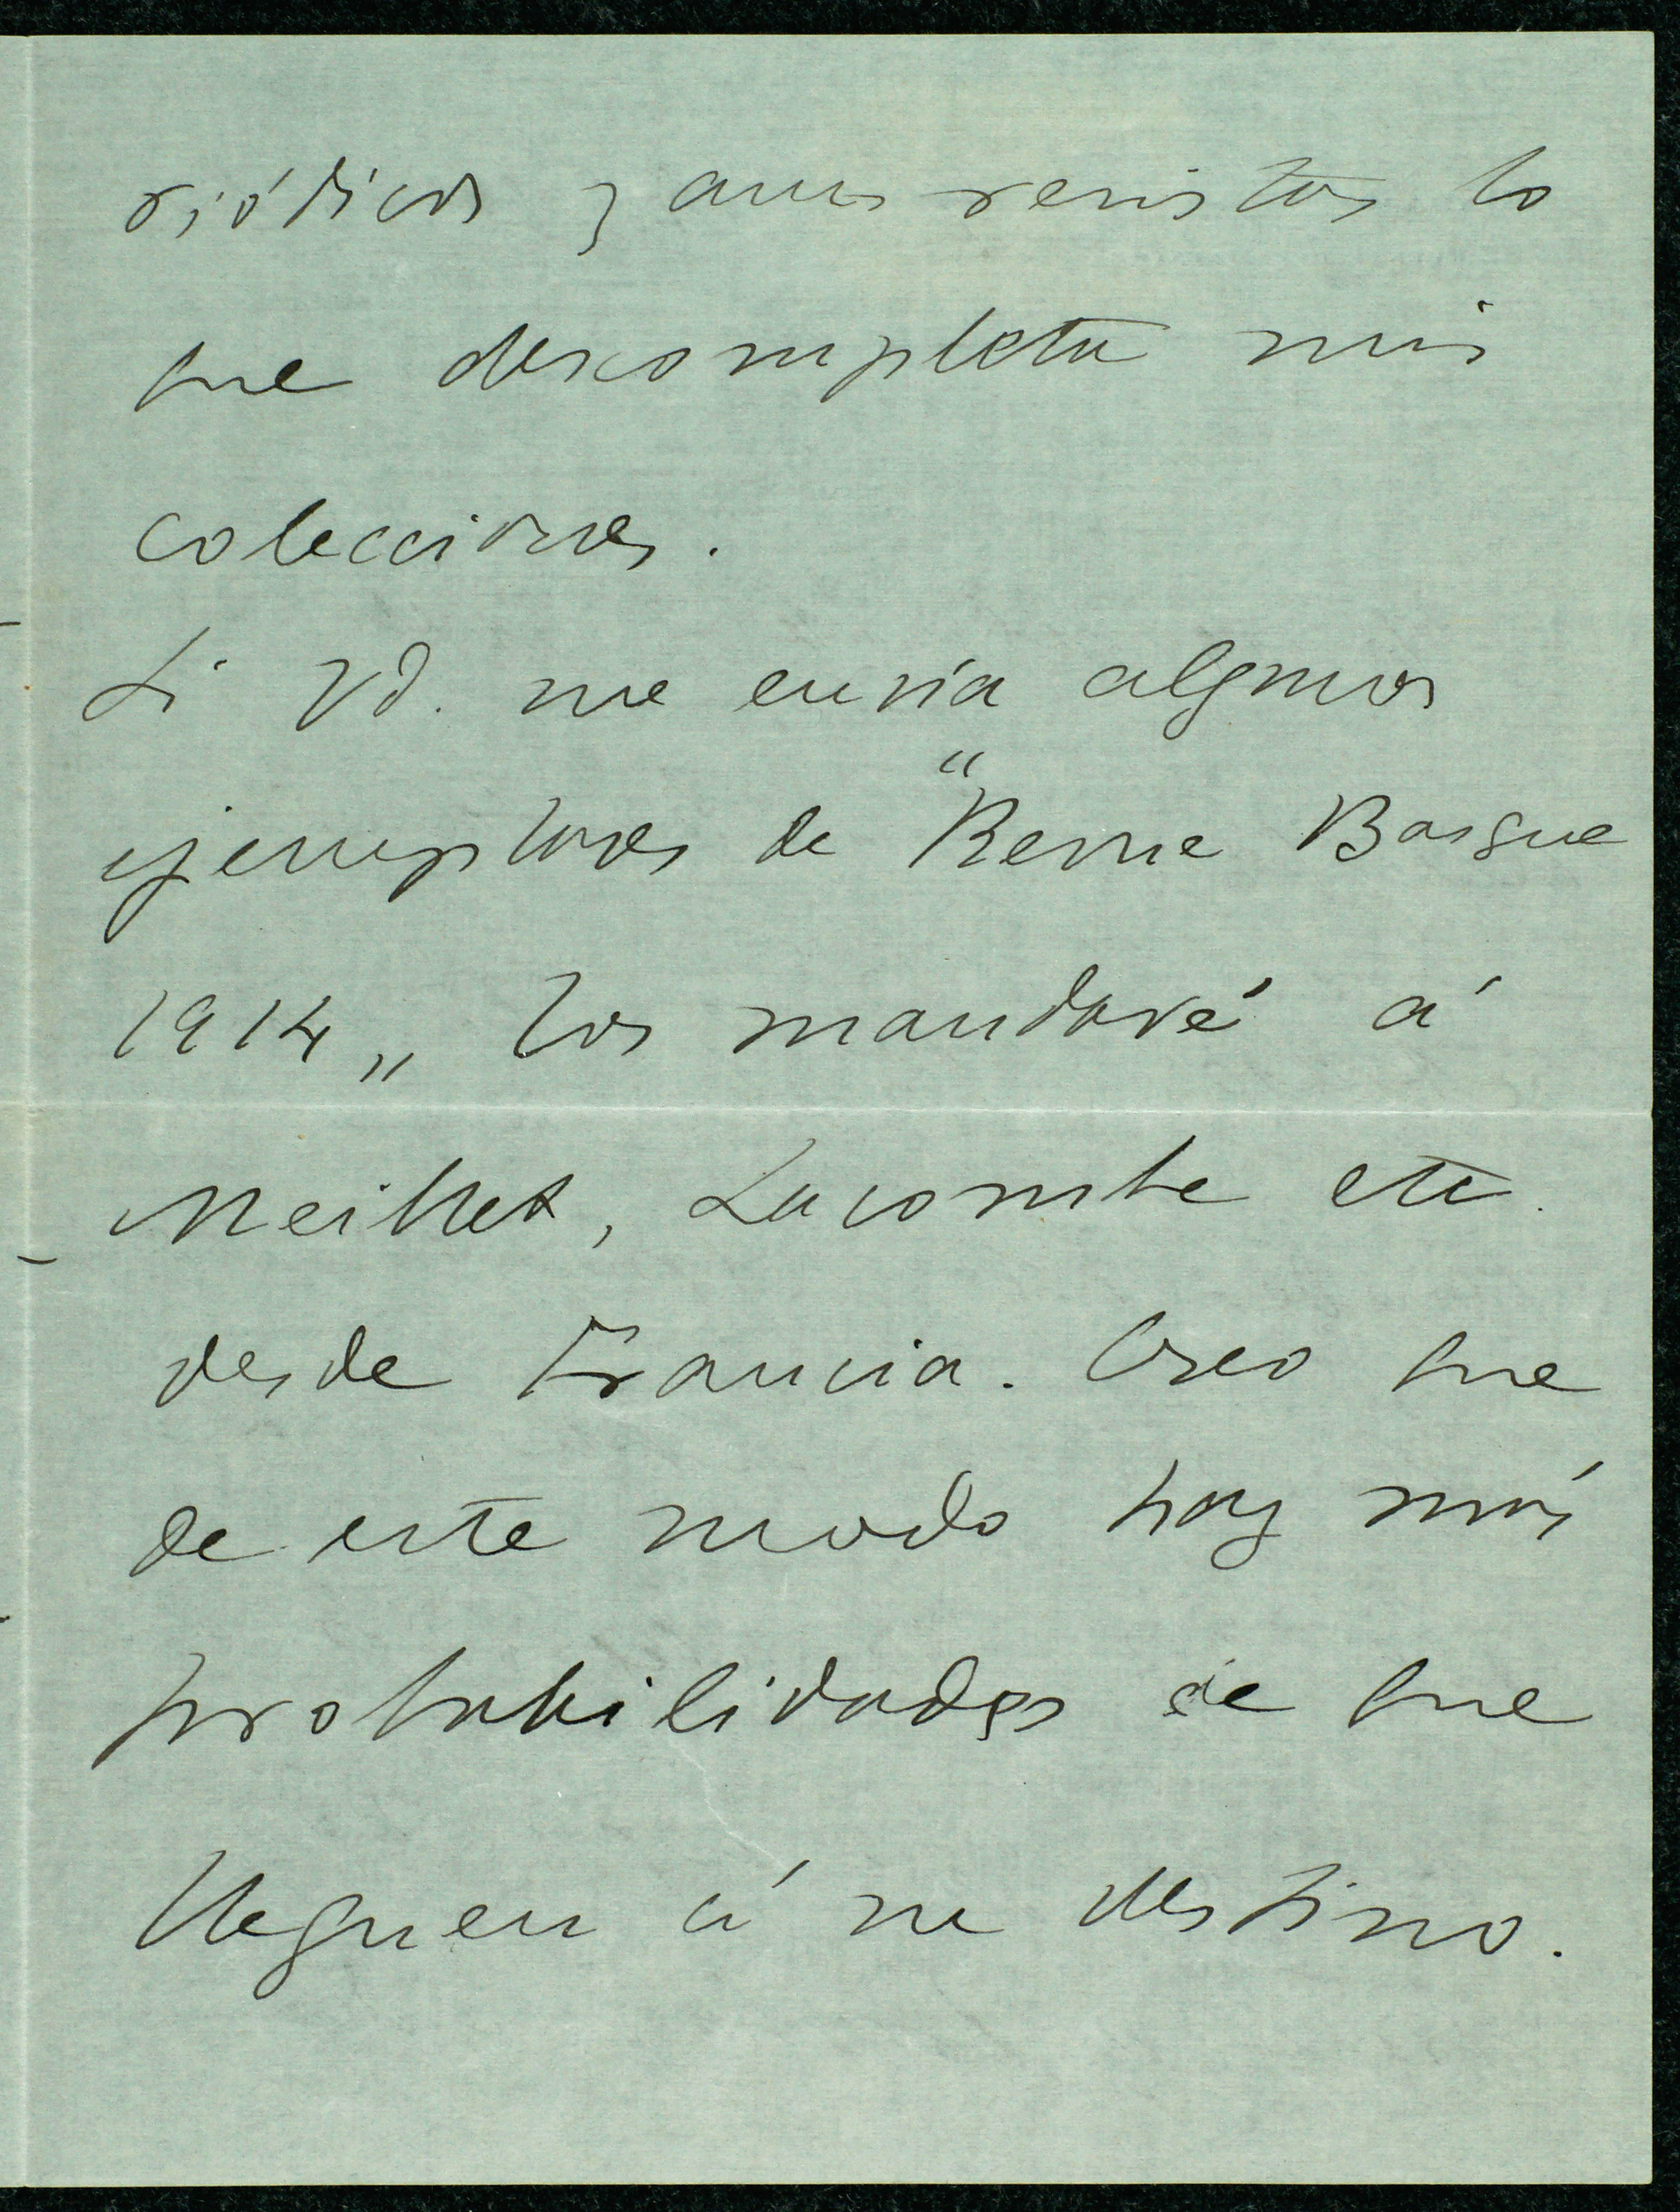 riódicos y aun revistas lo
que descompleta mis
colecciones.
Si Vd. me envía algunos
ejemplares de "Revue Basque
1914„ los mandaré á
Meillet, Lacombe etc.
desde Francia. Creo que
de este modo hay más
probabilidades de que
lleguen á su destino.